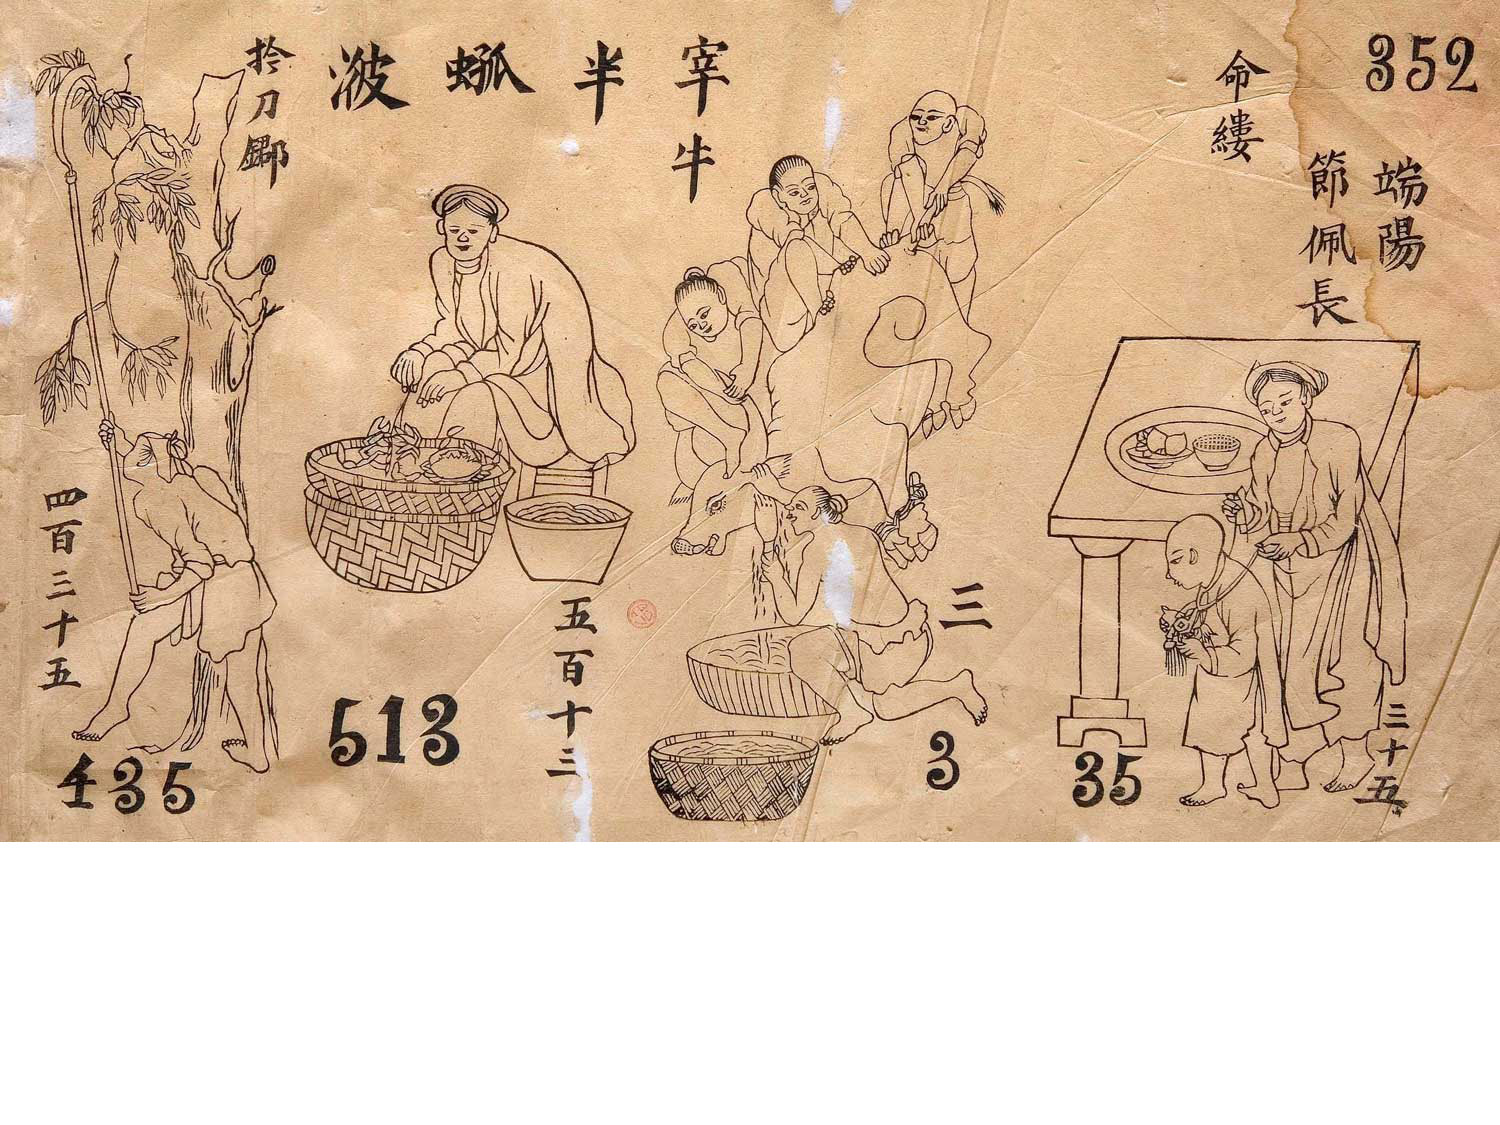 352
端陽
節佩長
命縷
三十五
35
宰牛
三
3
半
五百十三
513
扲刀
四百三十五
435